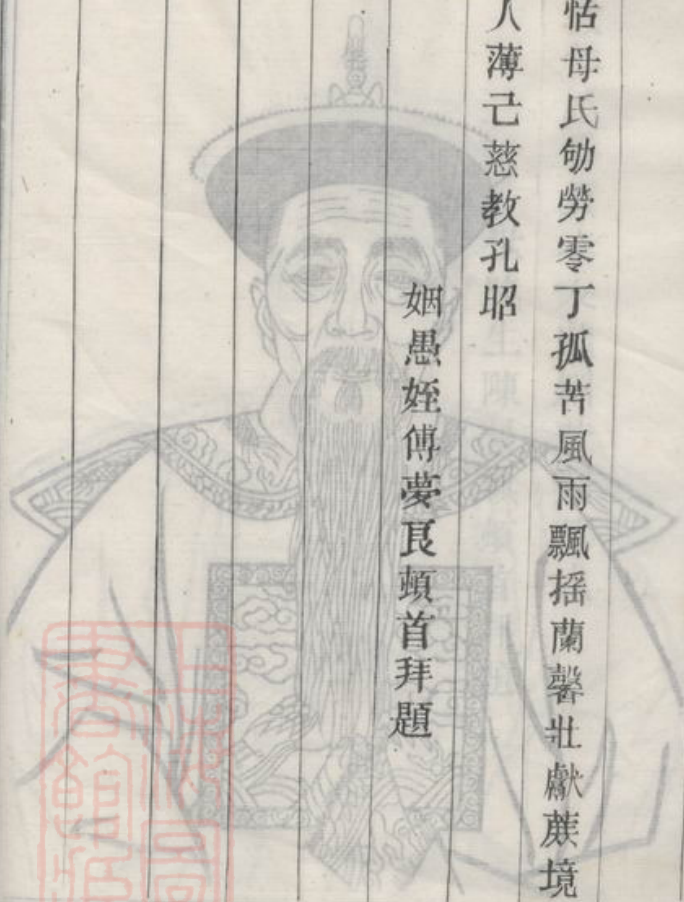 怙母氏劬勞零丁孤苦風雨飄摇蘭馨壯獻蔗境
人薄己慈教孔昭
姻愚姪傅夢良頓首拜題
上海圖
書館藏